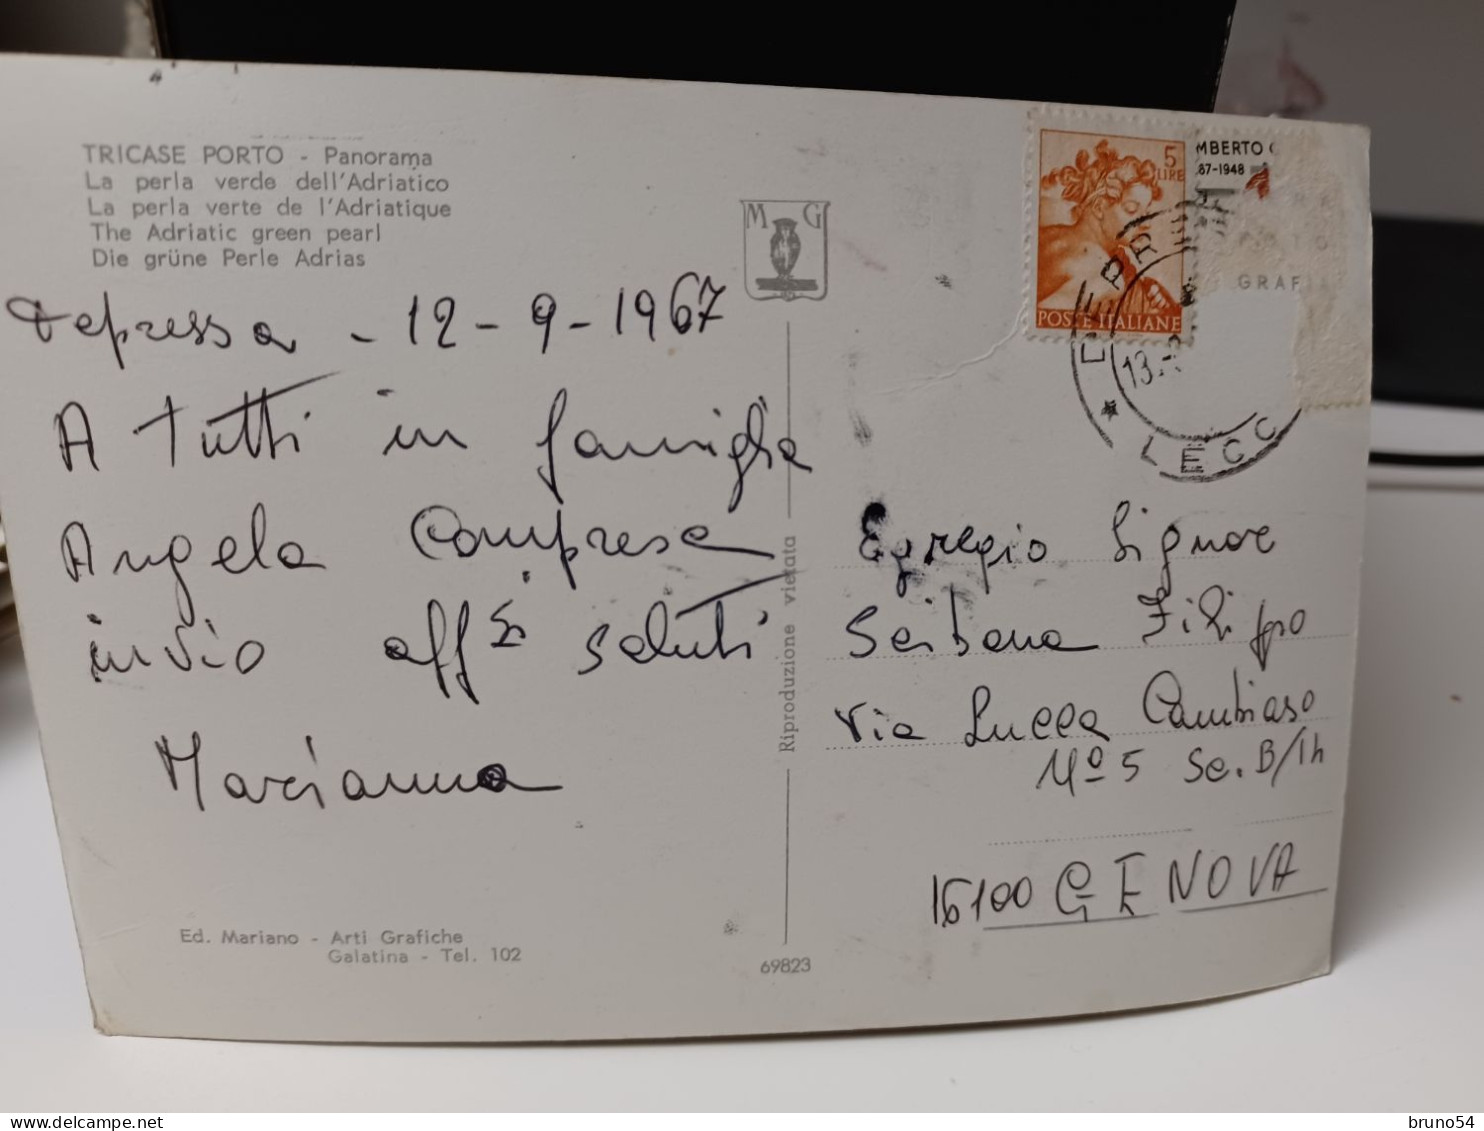 TRICASE PORTO - Panorama
La perla verde dell'Adriatico
La perla verte de l'Adriatique
The Adriatic green pearl
Die grüne Perle Adrias
M G
5 LIRE
POSTE ITALIANE
MBERTO
87-1948
GRAFI
DEPRE
13
* LECC
Depressa - 12-9-1967
A tutti in famiglia
Angela Compresa
invio aff.si saluti
Marianna
Egregio Signore
Filippo
Via Lucca Cambiaso
Nº 5 Sc. B/Ih
16100 GENOVA
Riproduzione vietata
Ed. Mariano - Arti Grafiche
Galatina - Tel. 102
69823
https://www.delcampe.net
bruno54